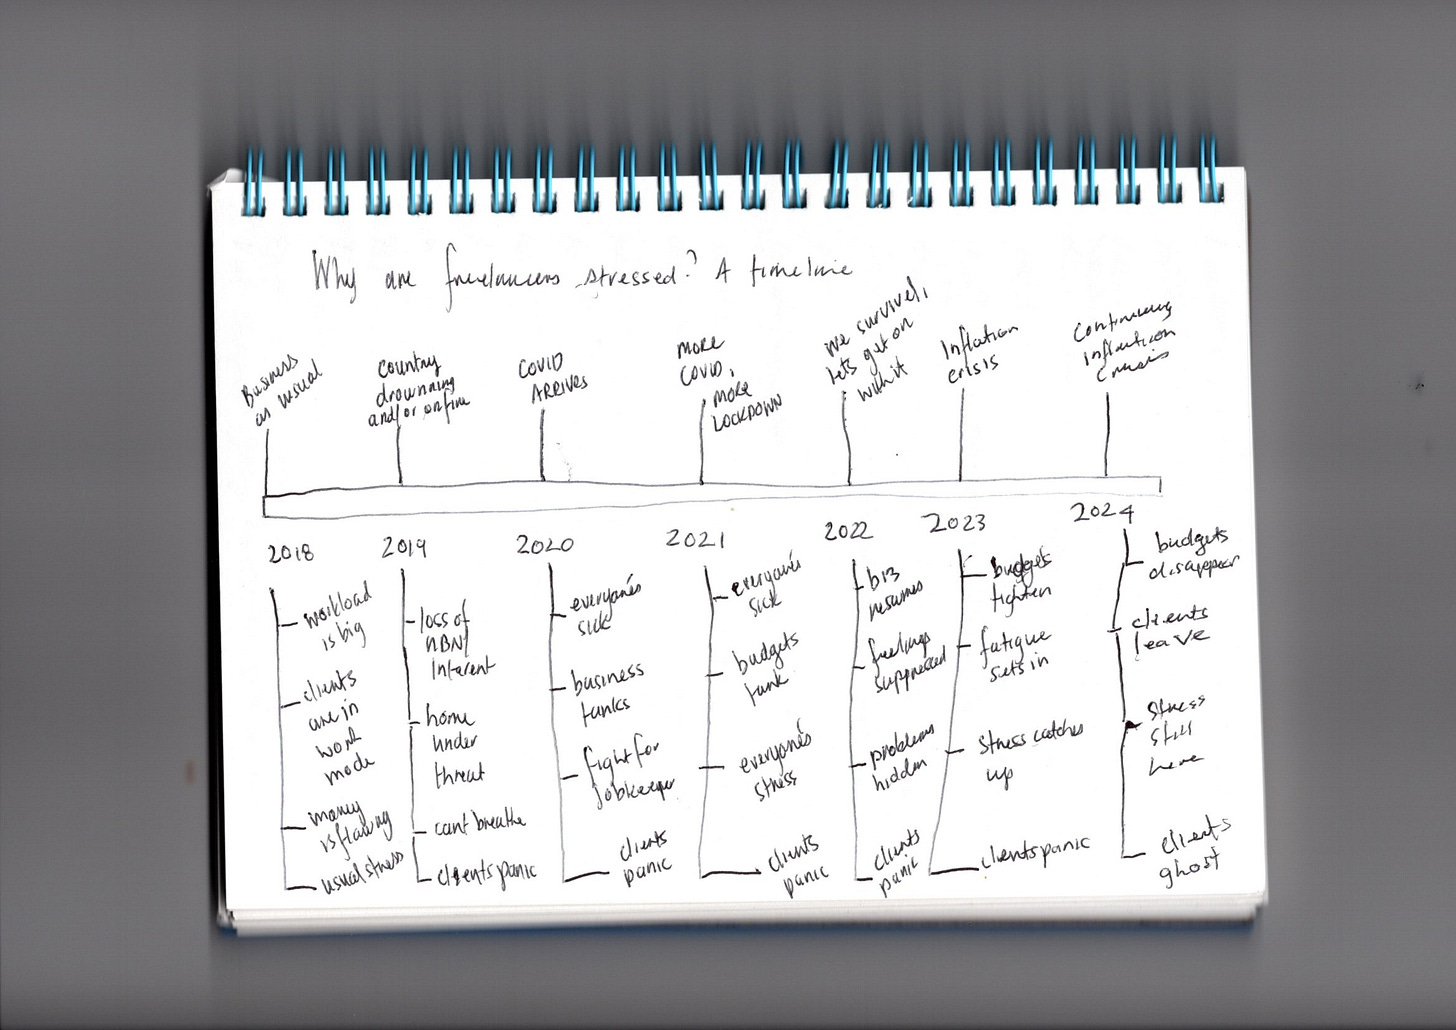 Why are freelancers stressed? A timeline
Business
as usual
Country
drowning
and/or on fire
COVID
ARRIVES
MORE
COVID,
MORE
LOCKDOWN
We survived,
lets get on
with it
Inflation
crisis
Continuing
inflation
crisis
2018
2019
2020
2021
2022
2023
2024
workload
is big
clients
are in
work
mode
money
is flowing
usual stress
loss of
NBN/
Interent
home
under
threat
cant breathe
clients panic
everyone's
sick
business
tanks
fight for
jobkeeper
clients
panic
everyone's
sick
budgets
tank
everyone's
stress
clients
panic
biz
resumes
feelings
suppressed
problems
hidden
clients
panic
budgets
tighten
fatigue
sets in
Stress catches
up
clients panic
budgets
disappear
clients
leave
Stress
still
here
clients
ghost